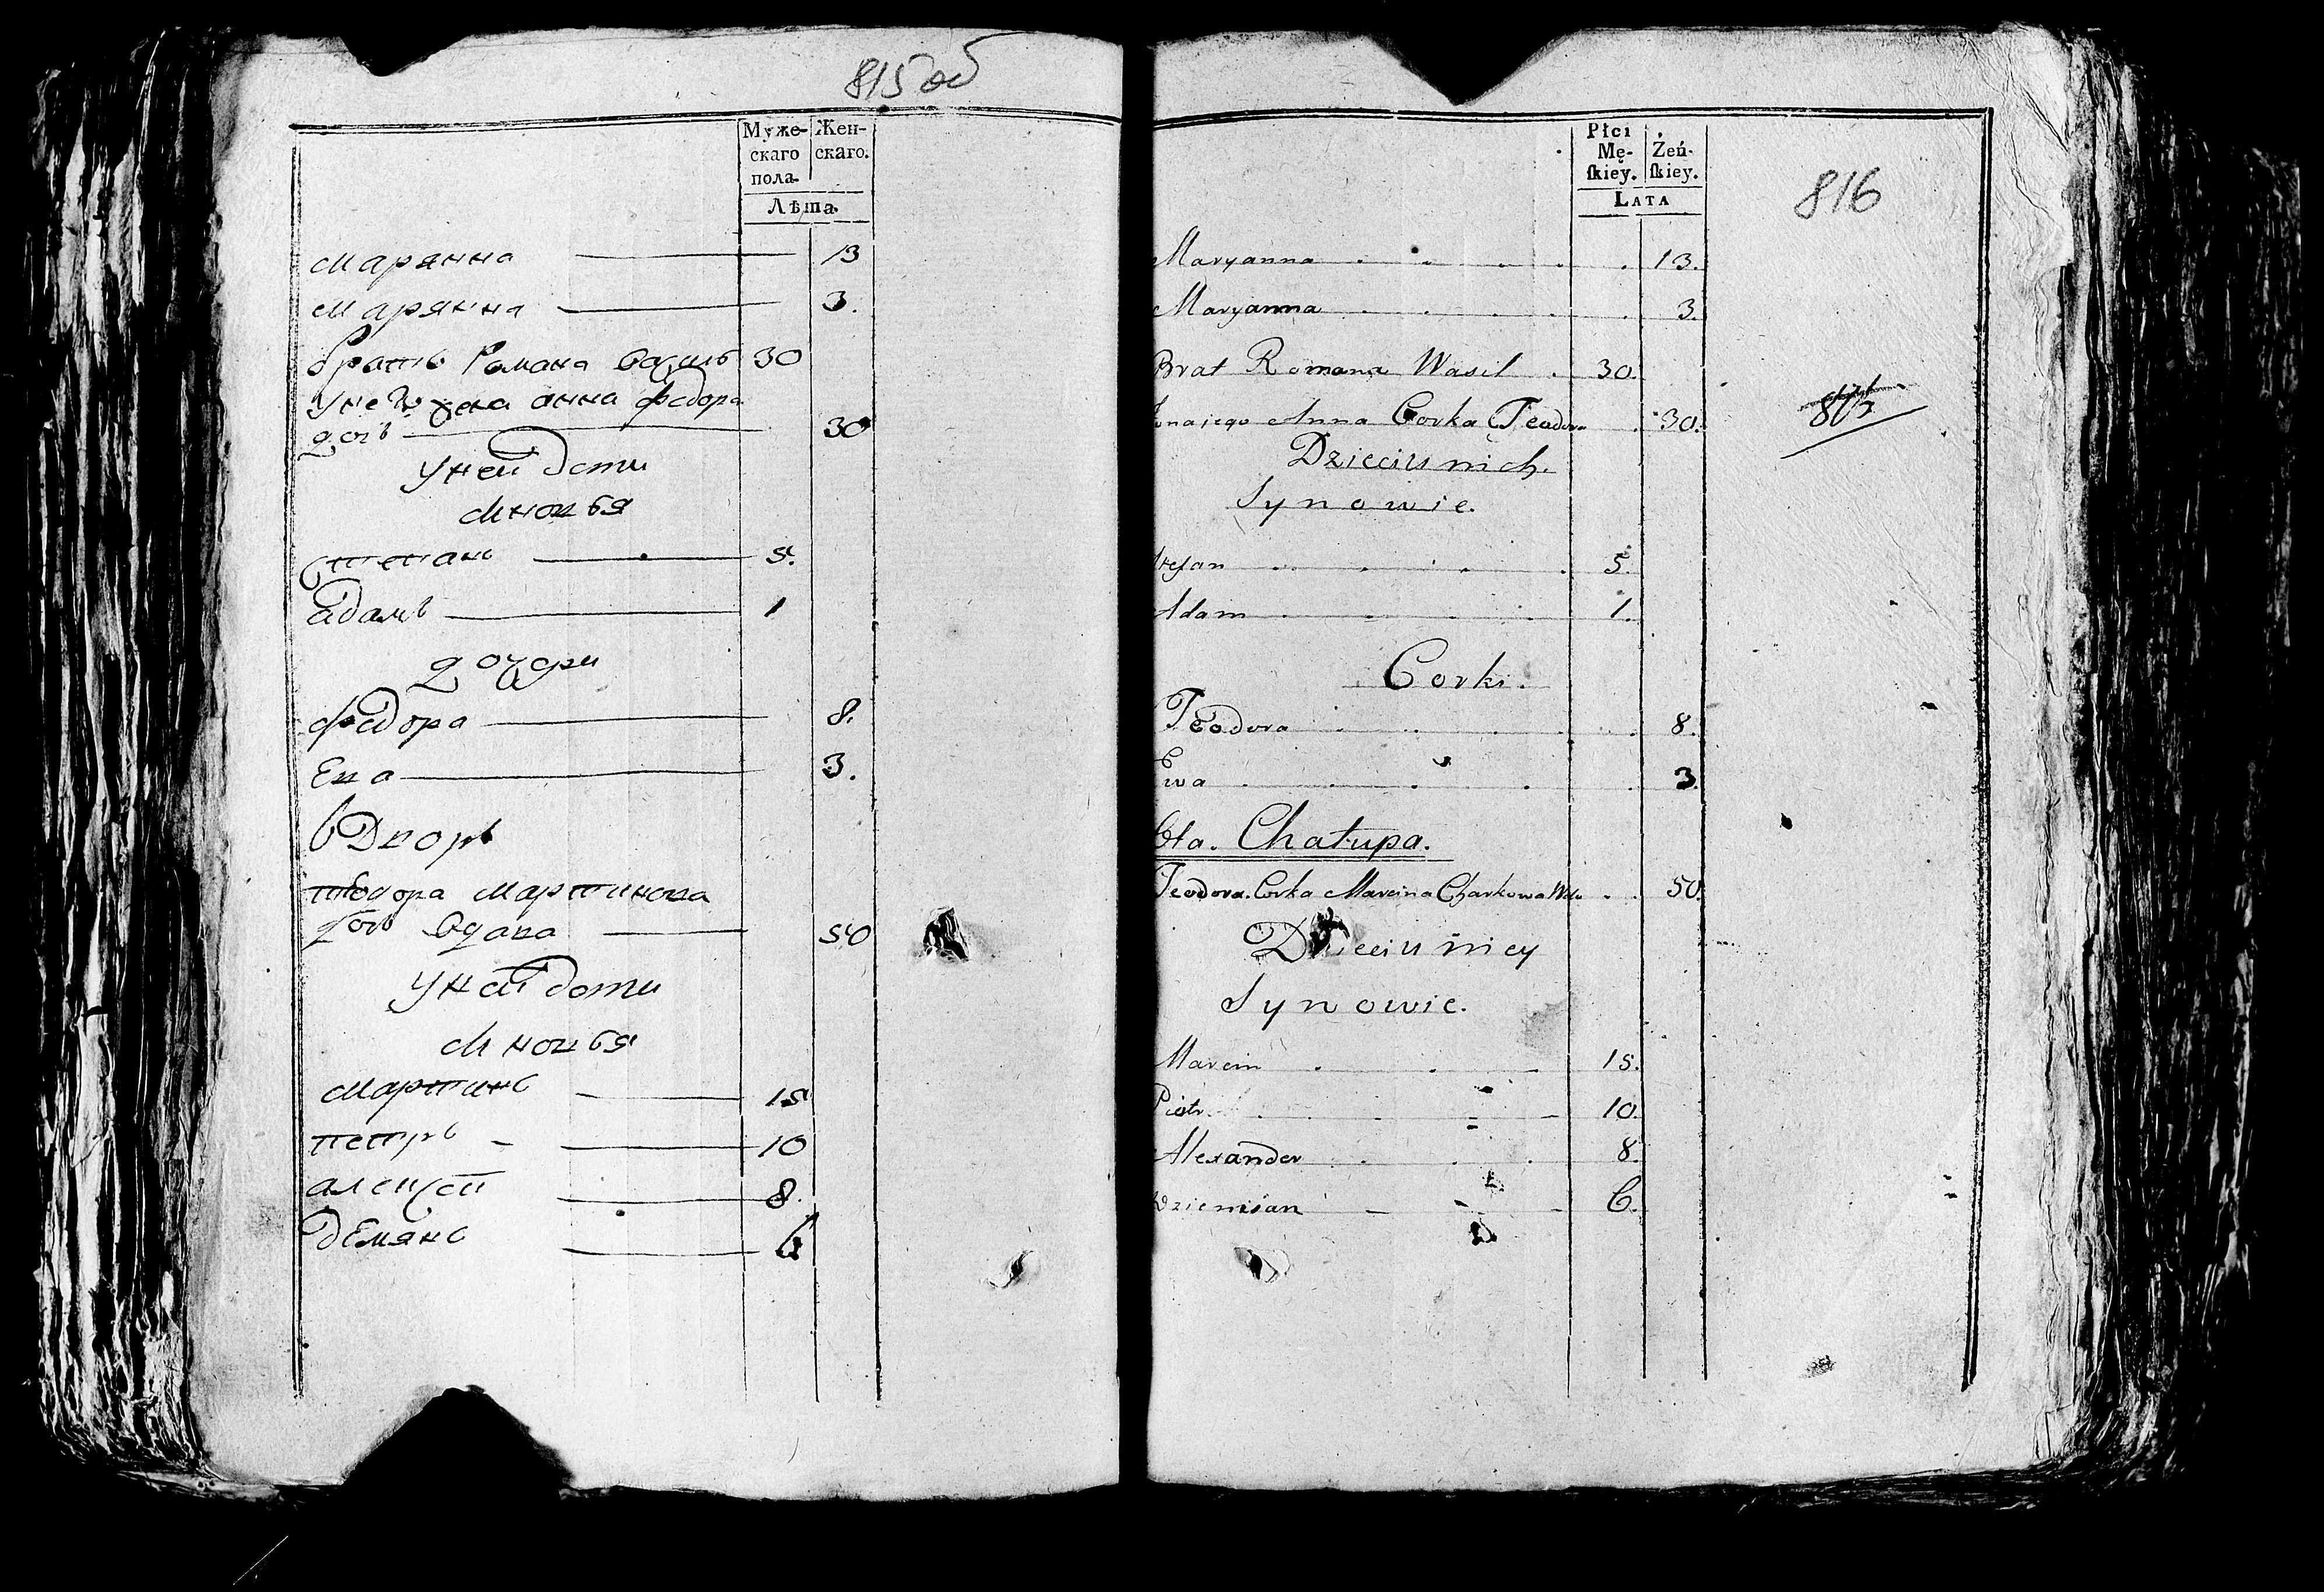 815 об
Муже-
скаго
пола.
Жен-
скаго.
Лѣта.
марянна 13
марянна 3.
братъ Романа василь 30
у него жена анна федора
дочь 30
у ней дети
сыновья
степанъ 5.
адамъ 1
дочери
федора 8.
Ева 3.
6 Дворъ
теодора мартинова
дочь вдава 50
у ней дети
сыновья
мартинъ 15
петръ 10
алексей 8.
демянъ 6
Płci
Mę-
ſkiey.
Żeń-
ſkiey.
LATA
816
Maryanna 13.
Maryanna 3.
Brat Romana Wasil 30.
żona jego Anna Corka Teodora 30.
Dzieci u nich.
Synowie.
Stefan 5
Adam 1.
Corki.
Teodora 8.
Ewa 3.
6ta. Chałupa.
Teodora Corka Marcina Charkowa Wdo 50.
Dzieci u niey
Synowie.
Marcin 15.
Piotr 10.
Alexander 8.
Dziemian 6.